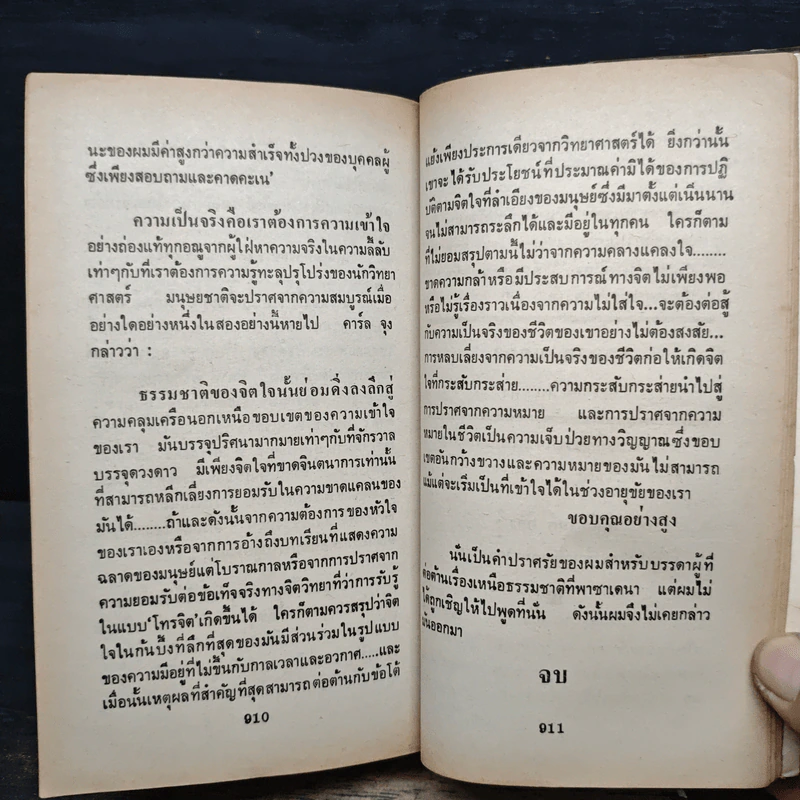 นะของผมมีค่าสูงกว่าความสำเร็จทั้งปวงของบุคคลผู้
ซึ่งเพียงสอบถามและคาดคะเน'
ความเป็นจริงคือเราต้องการความเข้าใจ
อย่างถ่องแท้ทุกอณูจากผู้ใฝ่หาความจริงในความลี้ลับ
เท่าๆกับที่เราต้องการความรู้ทะลุปรุโปร่งของนักวิทยา
ศาสตร์ มนุษยชาติจะปราศจากความสมบูรณ์เมื่อ
อย่างใดอย่างหนึ่งในสองอย่างนี้หายไป คาร์ล จุง
กล่าวว่า :
ธรรมชาติของจิตใจนั้นย่อมดิ่งลงลึกสู่
ความคลุมเครือนอกเหนือขอบเขตของความเข้าใจ
ของเรา มันบรรจุปริศนามากมายเท่าๆกับที่จักรวาล
บรรจุดวงดาว มีเพียงจิตใจที่ขาดจินตนาการเท่านั้น
ที่สามารถหลีกเลี่ยงการยอมรับในความขาดแคลนของ
มันได้........ถ้าและดังนั้นจากความต้องการของหัวใจ
ของเราเองหรือจากการอ้างถึงบทเรียนที่แสดงความ
ฉลาดของมนุษย์แต่โบราณกาลหรือจากการปราศจาก
ความยอมรับต่อข้อเท็จจริงทางจิตวิทยาที่ว่าการรับรู้
ในแบบ'โทรจิต'เกิดขึ้นได้ ใครก็ตามควรสรุปว่าจิต
ใจในก้นบึ้งที่ลึกที่สุดของมันมีส่วนร่วมในรูปแบบ
ของความมีอยู่ที่ไม่ขึ้นกับกาลเวลาและอวกาศ.....และ
เมื่อนั้นเหตุผลที่สำคัญที่สุดสามารถต่อต้านกับข้อโต้
910
แย้งเพียงประการเดียวจากวิทยาศาสตร์ได้ ยิ่งกว่านั้น
เขาจะได้รับประโยชน์ที่ประมาณค่ามิได้ของการปฏิ
บัติตามจิตใจที่ลำเอียงของมนุษย์ซึ่งมีมาตั้งแต่เนิ่นนาน
จนไม่สามารถระลึกได้และมีอยู่ในทุกคน ใครก็ตาม
ที่ไม่ยอมสรุปตามนี้ไม่ว่าจากความคลางแคลงใจ........
ขาดความกล้าหรือมีประสบการณ์ทางจิตไม่เพียงพอ
หรือไม่รู้เรื่องราวเนื่องจากความไม่ใส่ใจ...จะต้องต่อสู้
กับความเป็นจริงของชีวิตของเขาอย่างไม่ต้องสงสัย...
การหลบเลี่ยงจากความเป็นจริงของชีวิตก่อให้เกิดจิต
ใจที่กระสับกระส่าย........ความกระสับกระส่ายนำไปสู่
การปราศจากความหมาย และการปราศจากความ
หมายในชีวิตเป็นความเจ็บป่วยทางวิญญาณซึ่งขอบ
เขตอันกว้างขวางและความหมายของมันไม่สามารถ
แม้แต่จะเริ่มเป็นที่เข้าใจได้ในช่วงอายุขัยของเรา
ขอบคุณอย่างสูง
นั่นเป็นคำปราศรัยของผมสำหรับบรรดาผู้ที่
ต่อต้านเรื่องเหนือธรรมชาติที่พาซาเดนา แต่ผมไม่
ได้ถูกเชิญให้ไปพูดที่นั่น ดังนั้นผมจึงไม่เคยกล่าว
มันออกมา
จบ
911